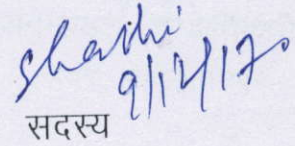 Shashi
9/12/17
सदस्य